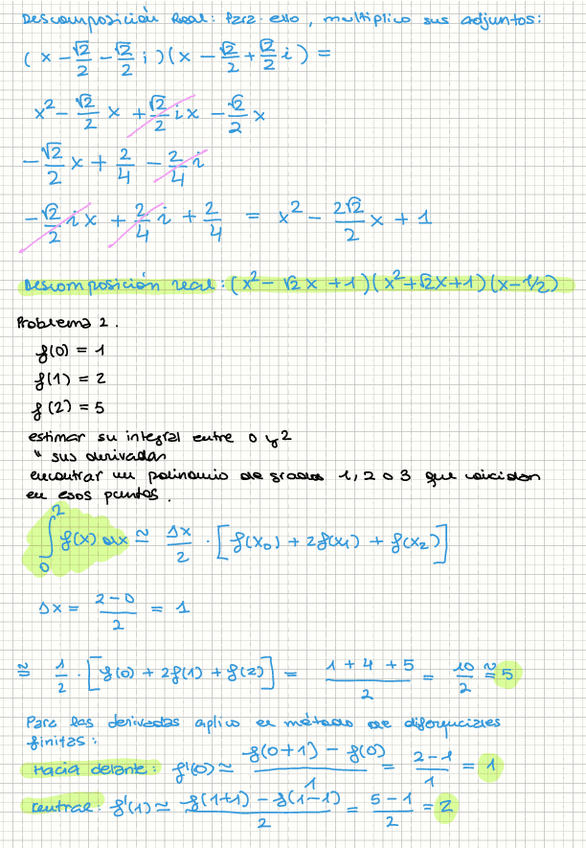 Descomposición Real: Para ello, multiplico sus adjuntos:
(x - √2/2 - √2/2 i)(x - √2/2 + √2/2 i) =
x² - √2/2 x + √2/2 ix - √2/2 x
- √2/2 x + 2/4 - 2/4 i
- √2/2 ix + 2/4 i + 2/4 = x² - 2√2/2 x + 1
Descomposición real: (x² - √2 x + 1)(x² + √2x + 1)(x - 1/2)
Problema 2.
f(0) = 1
f(1) = 2
f(2) = 5
estimar su integral entre 0 y 2
" sus derivadas
encontrar un polinomio de grados 1, 2 o 3 que coincidan
en esos puntos.
∫₀² f(x) dx ≅ Δx/2 · [f(x₀) + 2f(x₁) + f(x₂)]
Δx = 2-0/2 = 1
≅ 1/2 · [f(0) + 2f(1) + f(2)] = 1 + 4 + 5/2 = 10/2 ≅ 5
Para las derivadas aplico el método de diferenciales
finitas:
Hacia delante: f'(0) ≃ f(0+1) - f(0)/1 = 2-1/1 = 1
Central: f'(1) ≃ f(1+1) - f(1-1)/2 = 5-1/2 = 2